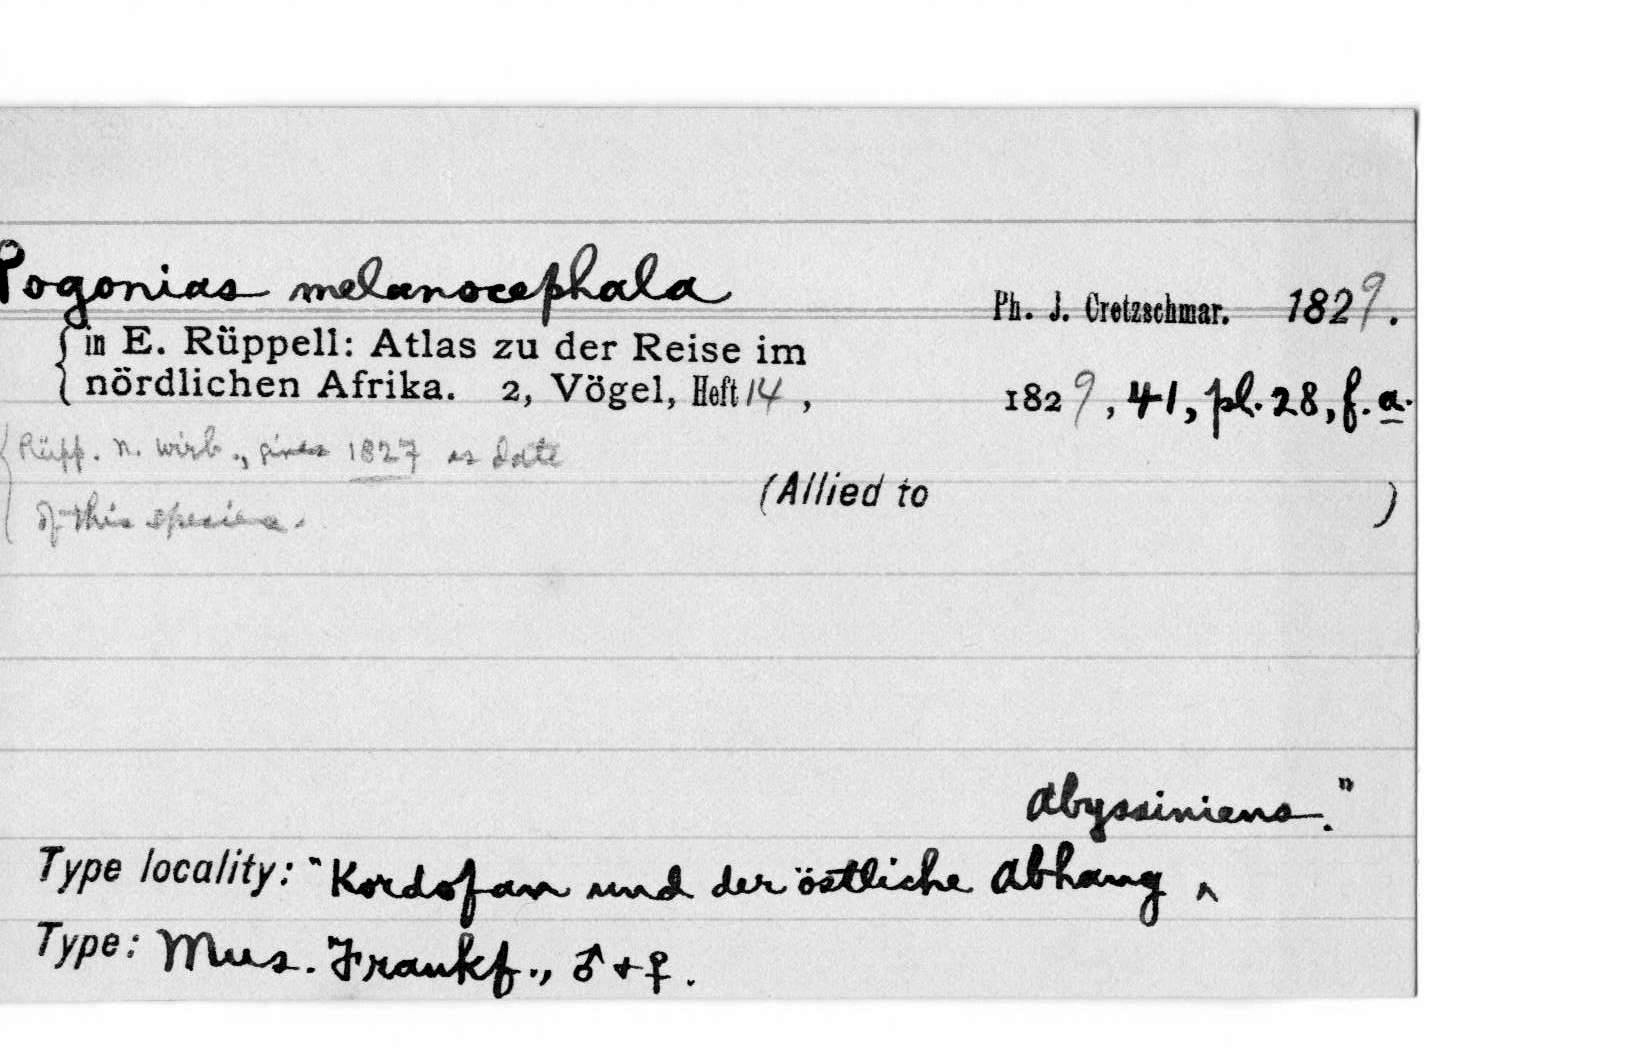 Pogonias melanocephala Ph. J. Cretzschmar. 1829.
in E. Rüppell: Atlas zu der Reise im
nördlichen Afrika. 2, Vögel, Heft 14, 1829, 41, pl. 28, f. a.
Rüpp. N. Wirb., gives 1827 as date
of this species.
(Allied to )
Abyssiniens."
Type locality: "Kordofan und der östliche Abhang ^
Type: Mus. Frankf., ♂ + ♀.